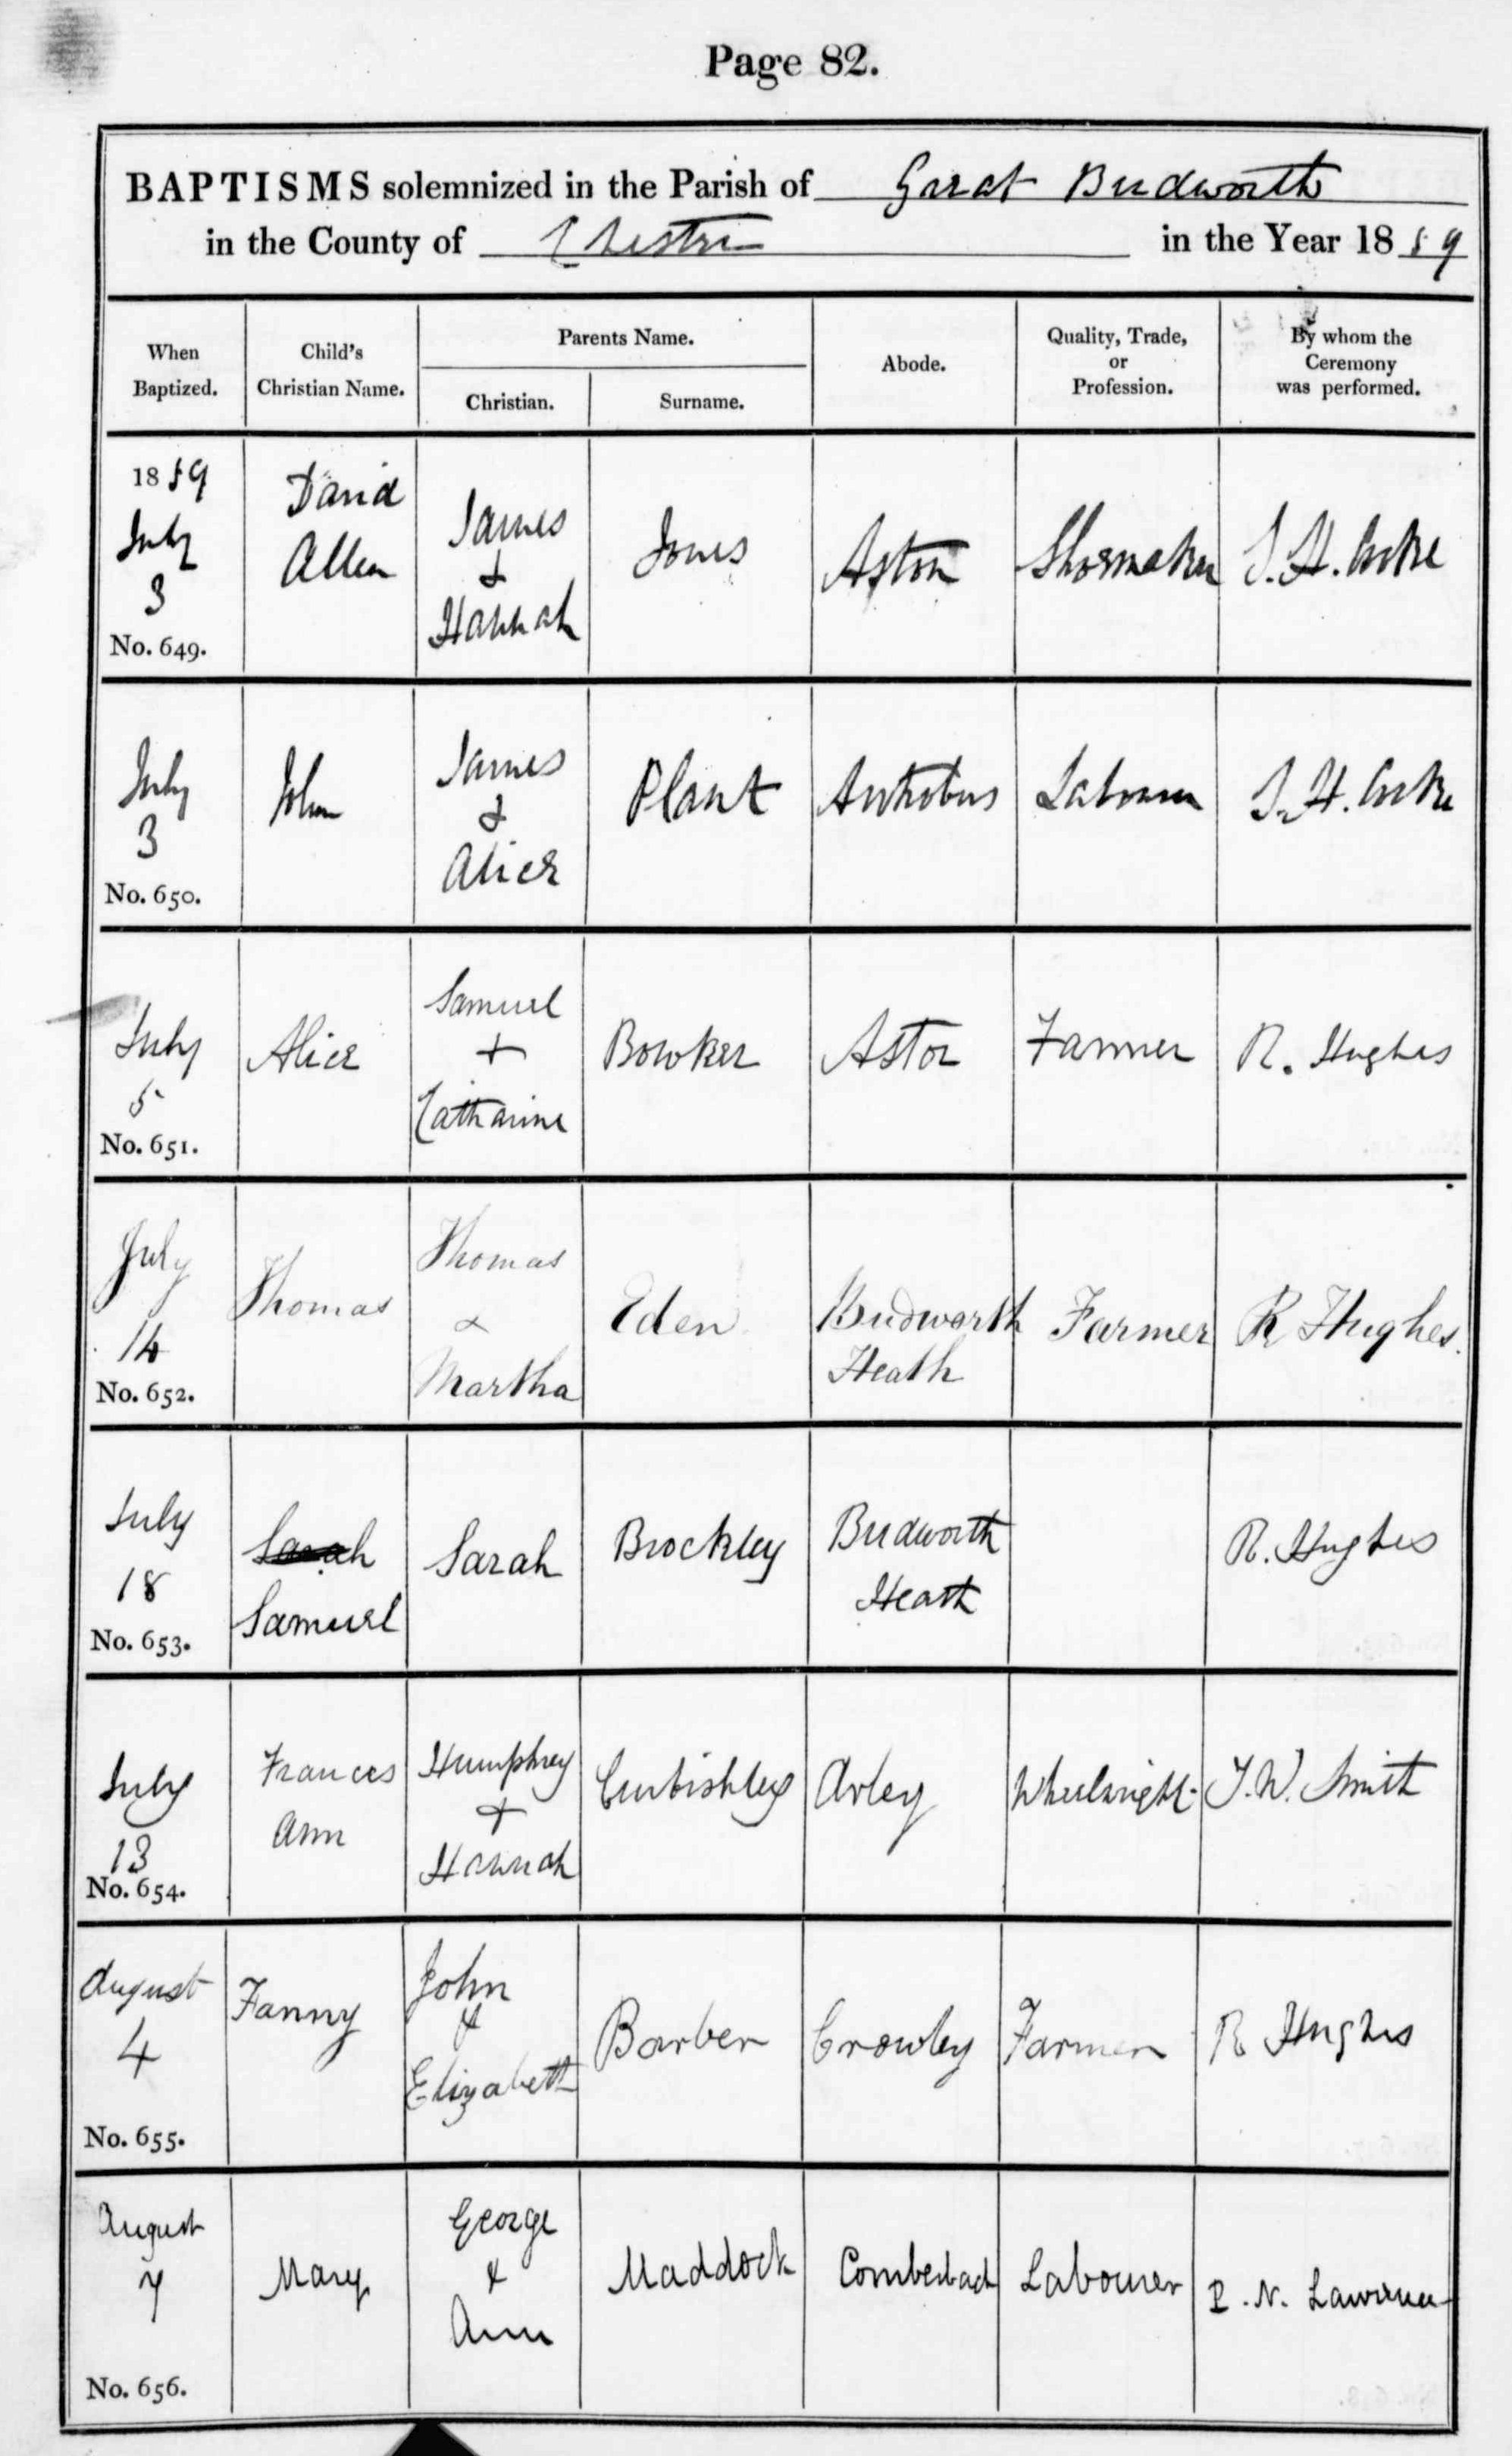 Page 82.
BAPTISMS solemnized in the Parish of Great Budworth
in the County of Chester in the Year 1859
When Baptized.
Child's Christian Name.
Parents Name.
Christian.
Surname.
Abode.
Quality, Trade, or Profession.
By whom the Ceremony was performed.
1859
July
3
No. 649.
David
Allen
James
&
Hannah
Jones
Aston
Shoemaker
S. H. Cooke
July
3
No. 650.
John
James
&
Alice
Plant
Antrobus
Labourer
S. H. Cooke
July
5
No. 651.
Alice
Samuel
+
Catharine
Bowker
Aston
Farmer
R. Hughes
July
14
No. 652.
Thomas
Thomas
&
Martha
Eden
Budworth
Heath
Farmer
R Hughes.
July
18
No. 653.
Sarah
Samuel
Sarah
Brockley
Budworth
Heath
R. Hughes
July
13
No. 654.
Frances
Ann
Humphrey
+
Hannah
Curbishley
Arley
Wheelwright
J. W. Smith
August
4
No. 655.
Fanny
John
&
Elizabeth
Barber
Crowley
Farmer
R Hughes
August
7
No. 656.
Mary
George
&
Ann
Maddock
Comberbach
Labourer
P. N. Lawrence